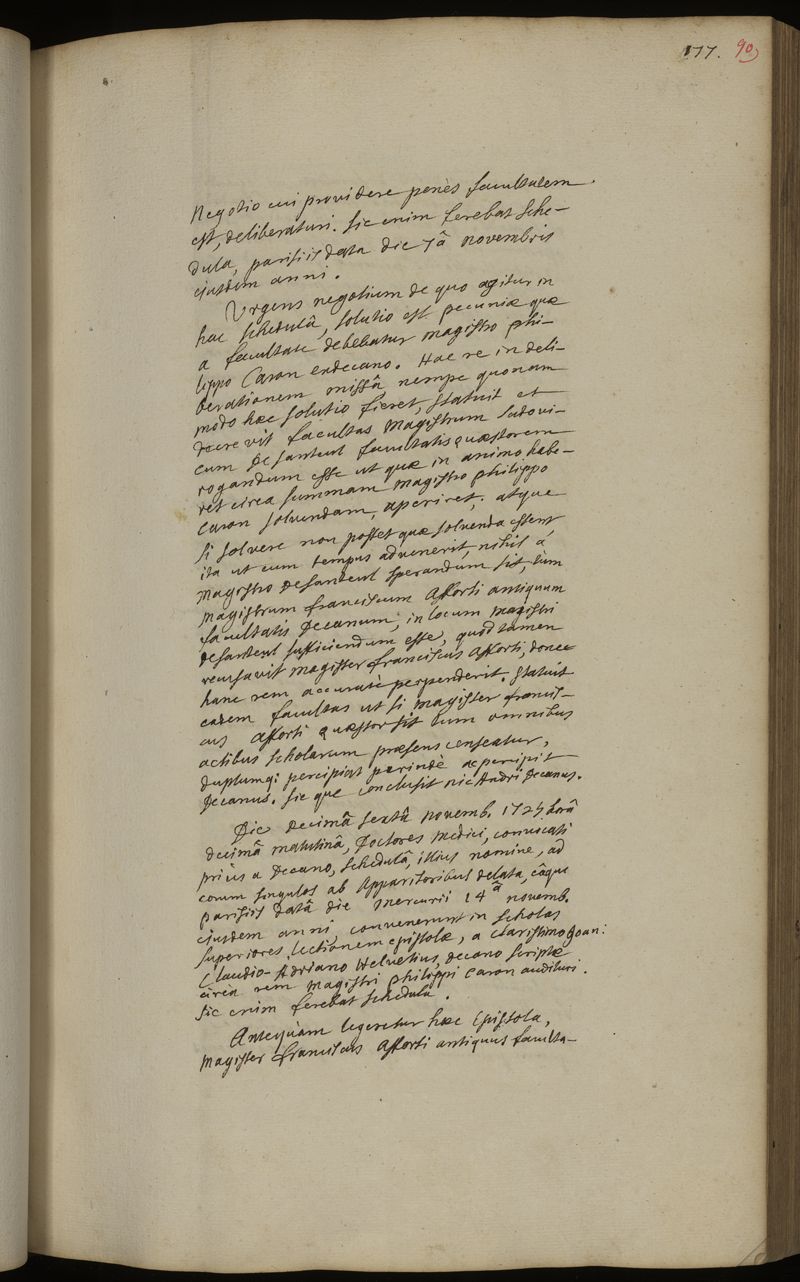 177. 90
Negotio cui providere penès facultatem
est, deliberaturi. sic enim ferebat sche-
dula, parisiis data die 7â novembris
ejusdem anni.
Urgens negotium de quo agitur in
hac schedulâ, solutio est pecuniæ quæ
a facultate debebatur magistro phi-
lippo Caron exdecano. Hac re in deli-
berationem missâ nempe quonam
modo hæc solutio fieret, statuit et
decrevit facultas Magistrum Ludovi-
cum De santeul facultatis quæstorem
rogandum esse ut quæ in animo habe-
ret circa summam magistro philippo
Caron solvendam, aperiret; atque
si solvere non posset quæ solvenda essent
ita ut cum tempus advenerit, nihil a
magistro desanteul sperandum sit, tum
magistrum franciscum Afforti antiquum
facultatis Decanum, in locum magistri
desanteul sufficiendum esse, quod tamen
recusavit magister franciscus afforti, donec
hanc rem accuratè perpenderit. statuit
eadem facultas ut si magister francis-
cus afforti quæstor sit tum omnibus
actibus scholarum præsens censeatur,
duplumq; percipiat perindè ac percipit
Decanus. sic que conclusit nic Andri Decanus.
Die decimâ sextâ novemb. 1725 horâ
decimâ matutinâ, Doctores medici, convocati
priùs a Decano, schedulâ, illius nomine, ad
eorum singulos ab Apparitoribus delata, eâque
parisiis datâ die mercurii 14â novemb.
ejusdem anni, convenerunt in scholas
superiores, lectionem epistolæ, a clarissimo Joan:
Claudio-Adriano Helvetius, decano scriptæ
circa rem magistri philippi Caron audituri.
sic enim ferebat schedula.
Antequàm legeretur hæc Epistola,
magister franciscus afforti antiquus faculta-